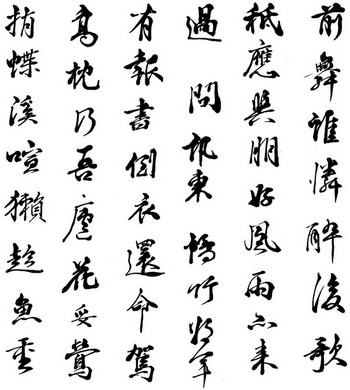 前舞誰憐醉後歌
祗應與朋好風雨亦來
過問訊東橋竹將軍
有報書倒衣還命駕
高枕乃吾廬花妥鶯
捎蝶溪喧獺趁魚重